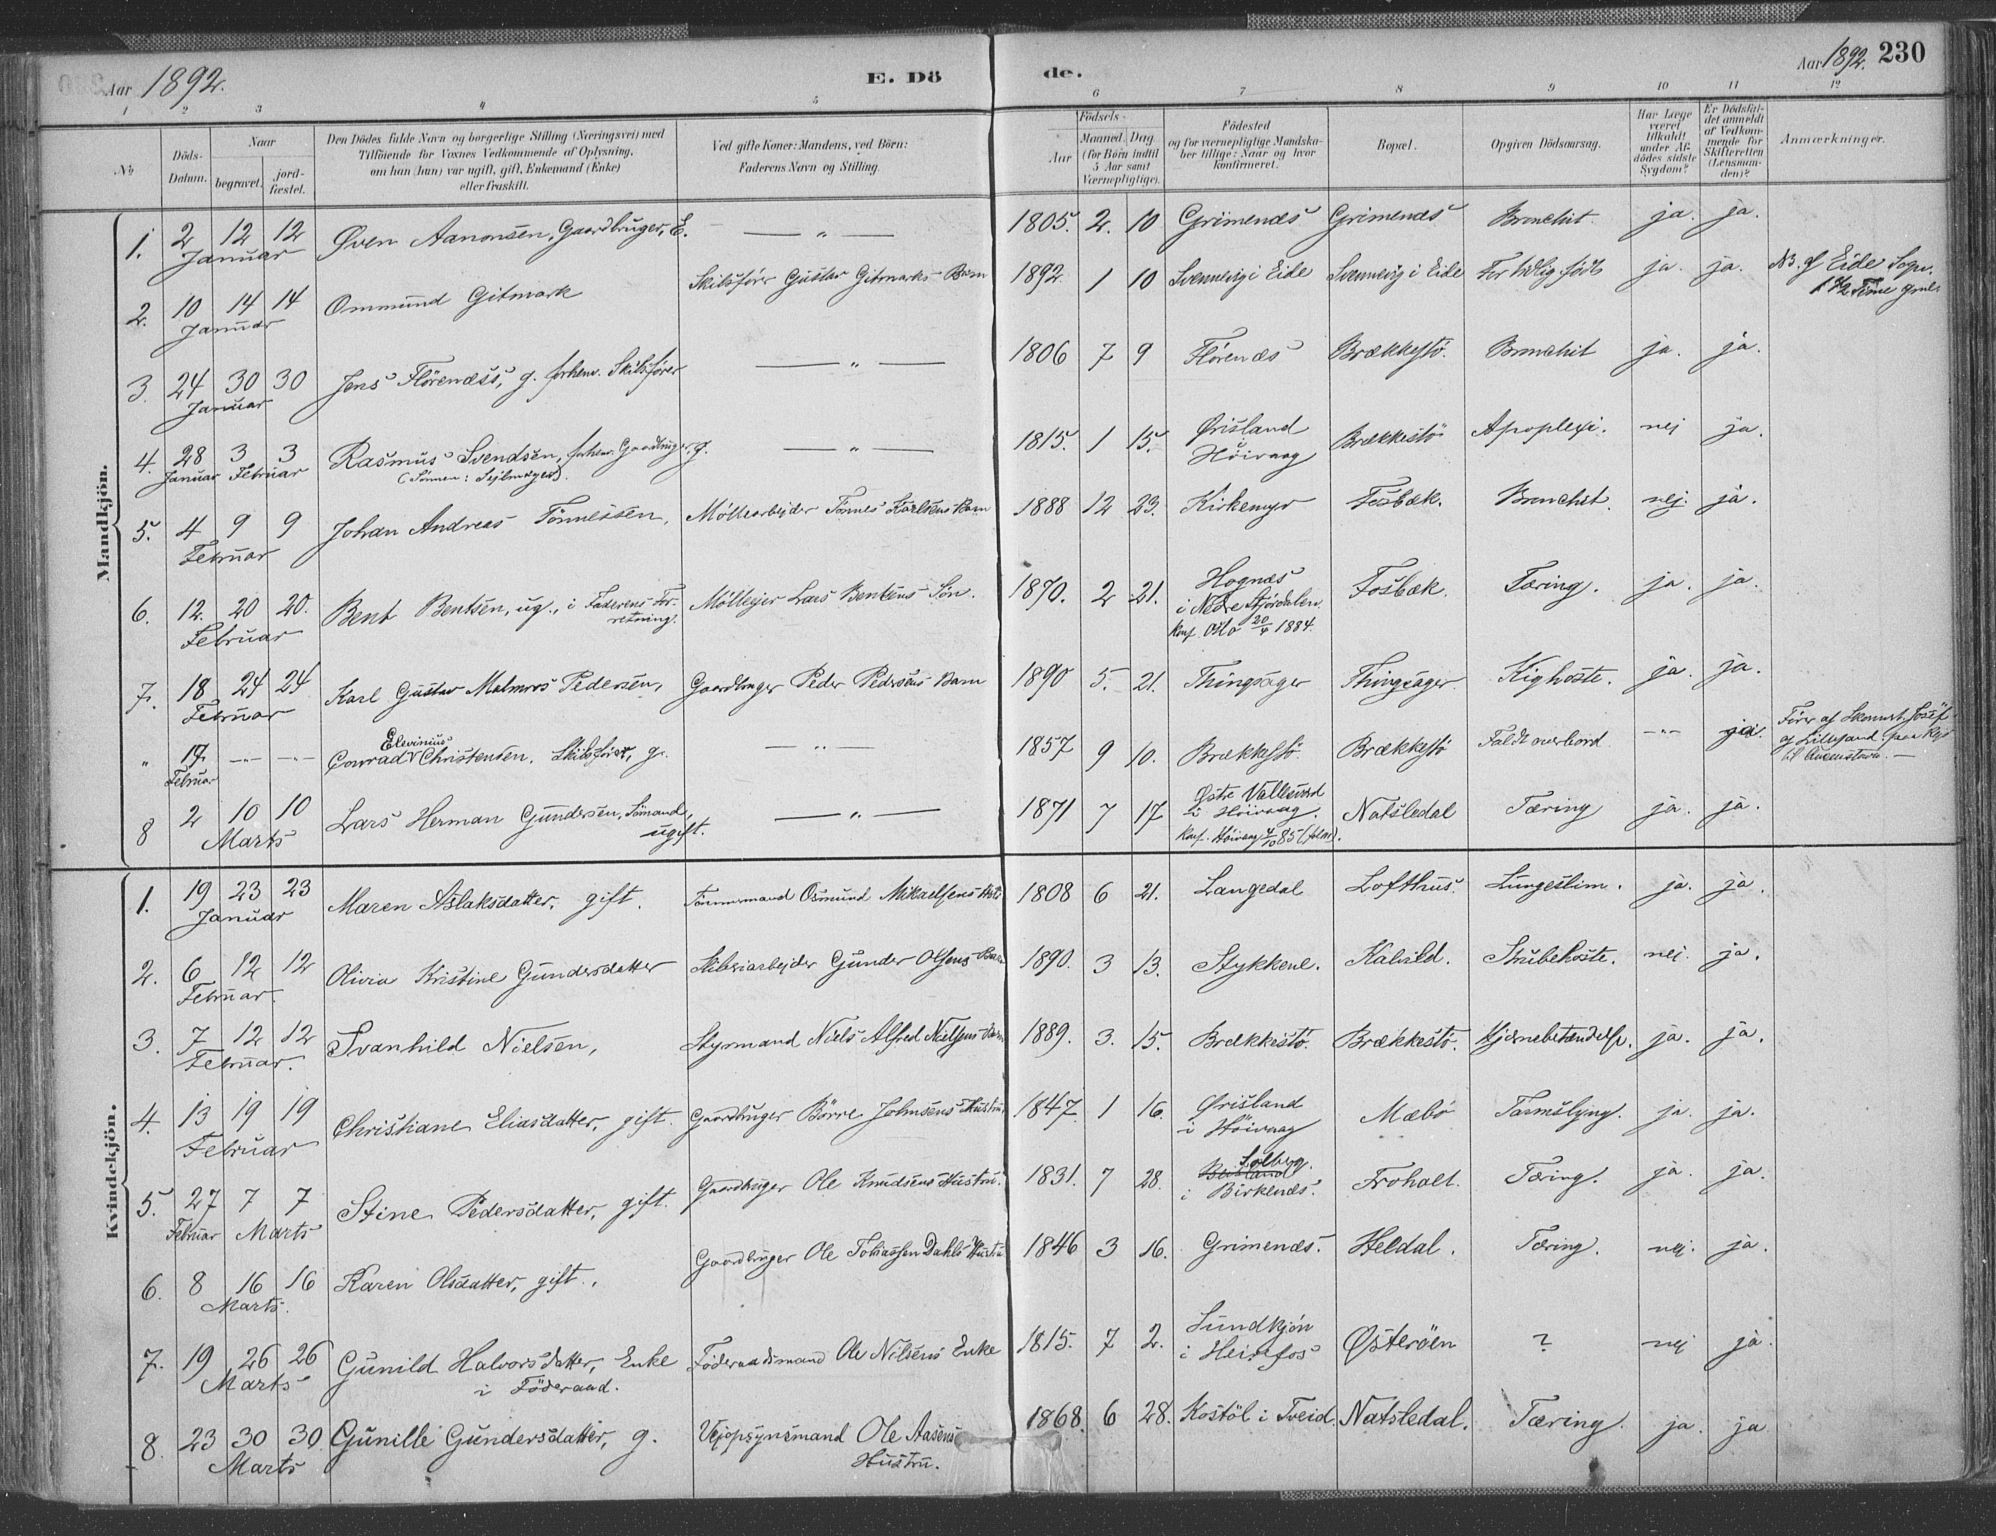 Aar 1892. E. Dö de. Aar 1892. 230
1 2 3 4 5 6 7 8 9 10 11 12
No Döds-Datum. Naar begravet. jord-fæstet. Den Dödes fulde Navn og borgerlige Stilling (Næringsvei) med Tilföiende for Voxnes Vedkommende af Oplysning, om han (hun) var ugift, gift, Enkemand (Enke) eller fraskilt. Ved gifte Koner: Mandens, ved Börn: Faderens Navn og Stilling. Födsels- Aar Maaned. Dag. (for Börn indtil 5 Aar samt Værnepligtige). Födested og for værnepligtige Mandskaber tillige: Naar og hvor konfirmeret. Bopæl. Opgiven Dödsaarsag. Har Læge været tilkaldt under Afdödes sidste Sygdom? Er Dödsfaldet anmeldt af Vedkommende for Skifteretten (Lensmanden)? Anmærkninger.
Mandkjön.
1. 2 12 12 Januar Øven Aanonsen, Gaardbruger, E. — „ — 1805. 2. 10 Grimenæs Grimenæs Bronchit. ja. ja.
2. 10 14 14 Januar Ommund Gitmark Skibsförer Gustav Gitmarks Barn 1892. 1 10 Svennevig i Eide Svennevig i Eide For tidlig født ja. ja. NB. af Eide Sogn. 1 1/2 Time gml.
3. 24 30 30 Januar Jens Flörenæss, g. forhenv. Skibsförer — „ — 1806 7 9 Flörenæs Brækkestö. Bronchit ja. ja.
4. 28 Januar 3 3 Februar Rasmus Svendsen, forhenv. Gaardbruger, g. — „ — 1815. 1 15. Ørisland Höivaag Brækkestö Apoplexi. nei ja.
5. 4 9 9 Februar Johan Andreas Tönnessen, Möllearbejder Tönnes Karlsens Barn 1888 12 23. Kirkemyr Fosbæk. Bronchit. nej ja.
6. 12. 20 20. Februar Bent Bentsen, ug., i Faderens Forretning. Mölleejer Lars Bentsens Sön. 1870. 2 21. Hognæs i Nedre Stjördalen. Konf. Oslo 20/4 1884. Fosbæk. Tæring. ja. ja.
7. 18 24 24 Februar Karl Gustav Malmros Pedersen, Gaardbruger Peder Pedersens Barn 1890 5. 21. Thingsager Thingsager. Kighoste. ja. ja.
„ 17 Februar -„- -„- Conrad Elevinius Christensen, Skibsförer, g. — „ — 1857 9 10. Brækkestö Brækkestö Faldt overbord -„- ja. Förer af af Lillesand paa Rejse til
8 2 10 10 Marts Lars Herman Gundersen, Sömand, ugift. — „ — 1871 7 17 Östre Vallesværd i Höivaag. Konf. Höivaag 4/10 85 Natsledal Tæring ja. ja.
Kvindekjön.
1. 19 23 23 Januar Maren Aslaksdatter, gift. Tömmermand Osmund Mikaelsens 1808 6 21. Langedal Lofthus. Lungeslim. ja. ja.
2. 6 12 12 Februar. Olivia Kristine Gundersdatter Skiberiarbejder Gunder Olsens Barn 1890. 3 13. Stykkene. Kalvild. Strubehoste. nej. ja.
3. 7 12 12 Februar. Svanhild Nielsen, Styrmand Niels Alfred Nielsens Barn 1889. 3. 15. Brækkestö. Brækkestö. Hjernebetændelse. ja. ja.
4. 13 19 19 Februar Christiane Eliasdatter, gift. Gaardbruger Börre Johnsens Hustru 1847. 1 16. Ørisland i Höivaag Mæbö Tarmslyng. ja. ja.
5. 27 Februar 7 7 Marts Stine Pedersdatter, gift. Gaardbruger Ole Knudsens Hustru. 1831. 7 28. Solberg. i Birkenæs. Froholt. Tæring. ja. ja.
6. 8 16 16 Marts. Karen Olsdatter, gift. Gaardbruger Ole Tobiassen Dahls Hustru 1846 3 16. Grimenæs. Heldal. Tæring. nej. ja.
7. 19 26 26 Marts Gunild Halvorsdatter, Enke i Föderaad. Föderaadsmand Ole Nilsens Enke 1815. 7 2. Sundkjön i Heirefos Østeröen ? nej ja.
8. 23 30 30 Marts Gunille Gundersdatter, g. Vejopsynsmand Ole Aasens Hustru. 1868. 6 28. Kostöl i Tveid. Natsledal. Tæring. ja. ja